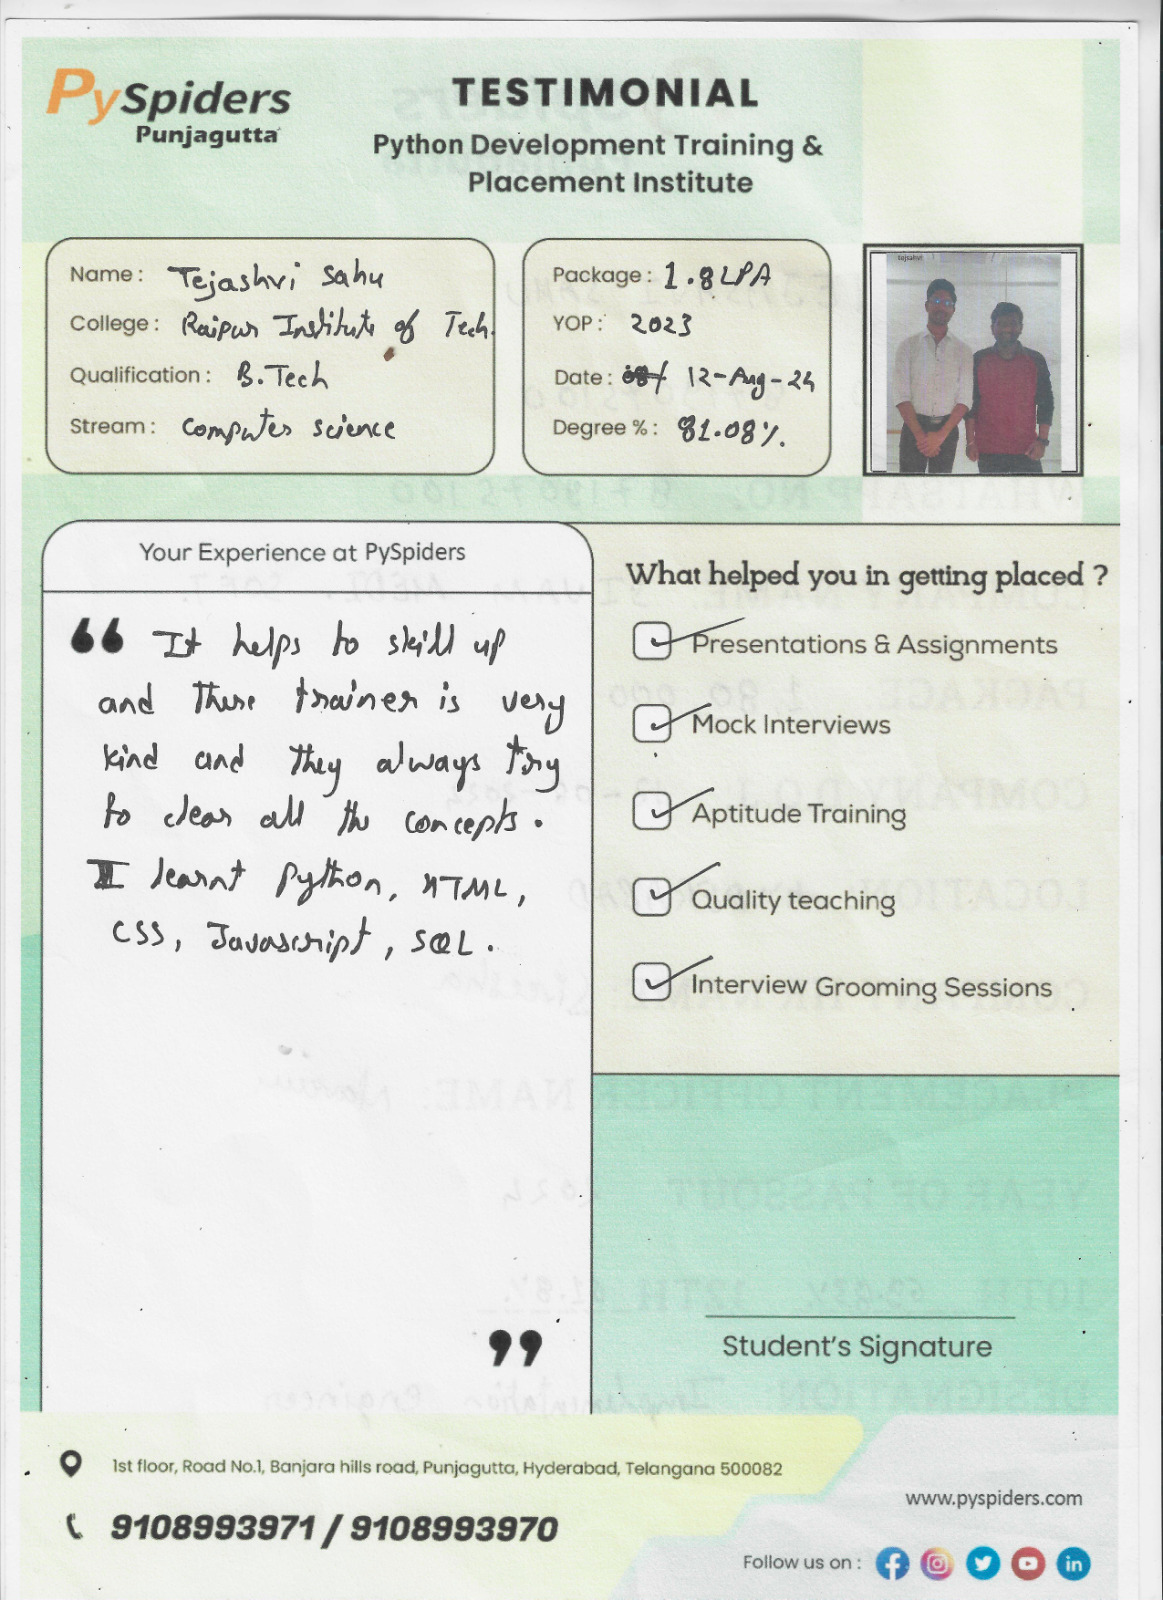 PySpiders
Punjagutta
TESTIMONIAL
Python Development Training &
Placement Institute
Name : Tejashri Sahu
College : Raipur Institute of Tech.
Qualification : B.Tech
Stream : Computer science
Package : 1.8 LPA
YOP : 2023
Date : 12-Aug-24
Degree % : 81.08%.
tejsahvi
Your Experience at PySpiders
“ It helps to skill up
and there trainer is very
kind and they always try
to clear all the concepts.
I learnt Python, HTML,
CSS, Javascript, SQL.
”
What helped you in getting placed ?
Presentations & Assignments
Mock Interviews
Aptitude Training
Quality teaching
Interview Grooming Sessions
Student's Signature
1st floor, Road No.1, Banjara hills road, Punjagutta, Hyderabad, Telangana 500082
9108993971 / 9108993970
www.pyspiders.com
Follow us on :